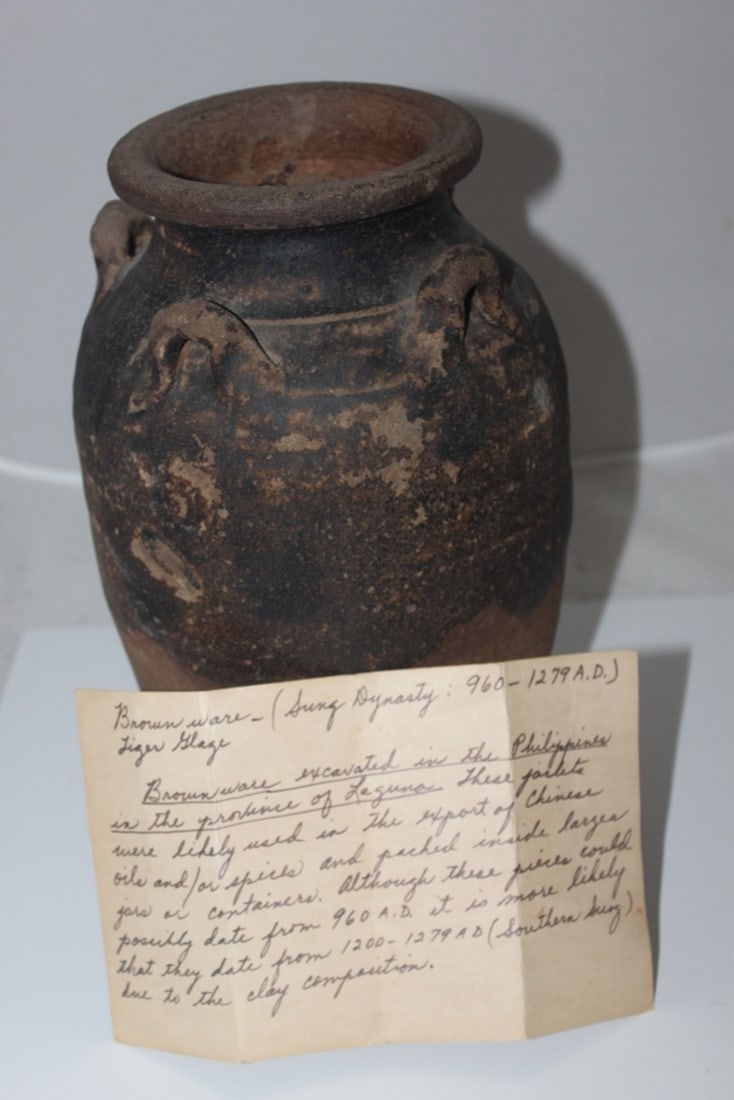 Brown ware - (Sung Dynasty: 960-1279 A.D.)
Tiger Glaze
Brown ware excavated in the Philippines
in the province of Laguna. These jarlets
were likely used in the export of Chinese
oils and/or spices and packed inside larger
jars or containers. Although these pieces could
possibly date from 960 A.D. it is more likely
that they date from 1200-1279 AD (Southern Sung)
due to the clay composition.